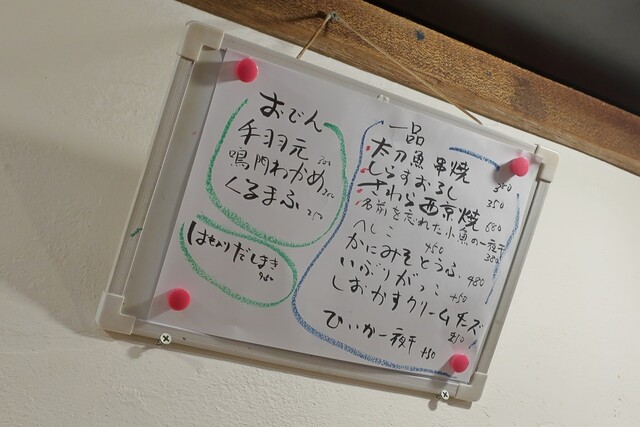 おでん
手羽元
鳴門わかめ
くるまふ
はもいりだしまき
一品
太刀魚串焼 380
しらすおろし 350
さわら西京焼 680
名前を忘れた小魚の一夜干 380
へしこ 450
かにみそとうふ 480
いぶりがっこ 450
しおかすクリームチーズ 350
ひいか一夜干 450